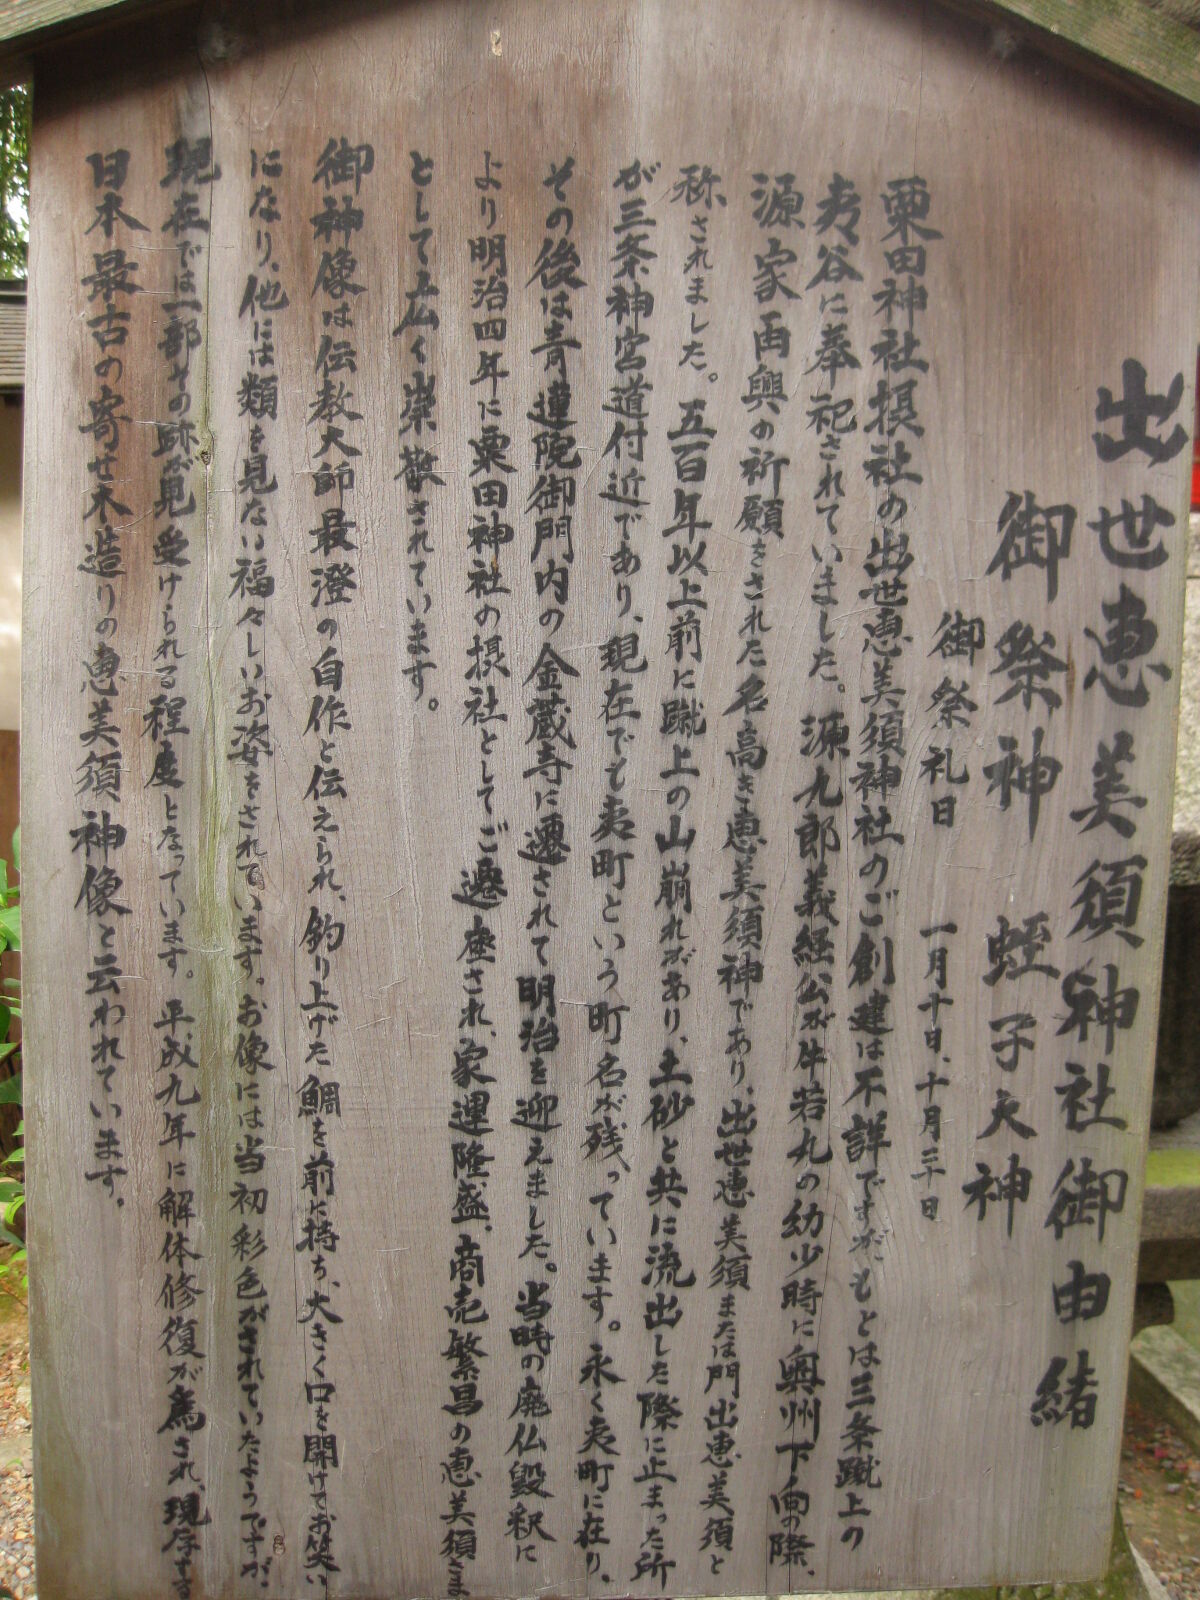 出世恵美須神社御由緒
御祭神 蛭子大神
御祭礼日 一月十日、十月二十日
粟田神社摂社の出世恵美須神社のご創建は不詳ですが、もとは三条蹴上の
夷谷に奉祀されていました。源九郎義経公が牛若丸の幼少時に奥州下向の際、
源家再興の祈願をされた名高き恵美須神であり、出世恵美須または門出恵美須と
称されました。五百年以上前に蹴上の山崩れがあり、土砂と共に流出した際に止まった所
が三条神宮道付近であり、現在でも夷町という町名が残っています。永く夷町に在り、
その後は青蓮院御門内の金蔵寺に遷されて明治を迎えました。当時の廃仏毀釈に
より明治四年に粟田神社の摂社としてご遷座され、家運隆盛、商売繁昌の恵美須さま
として広く崇敬されています。
御神像は伝教大師最澄の自作と伝えられ、釣り上げた鯛を前に持ち、大きく口を開けてお笑い
になり、他には類を見ない福々しいお姿をされています。お像には当初彩色がされていたようですが、
現在では一部その跡が見受けられる程度となっています。平成九年に解体修復が為され、現存する
日本最古の寄せ木造りの恵美須神像と云われています。